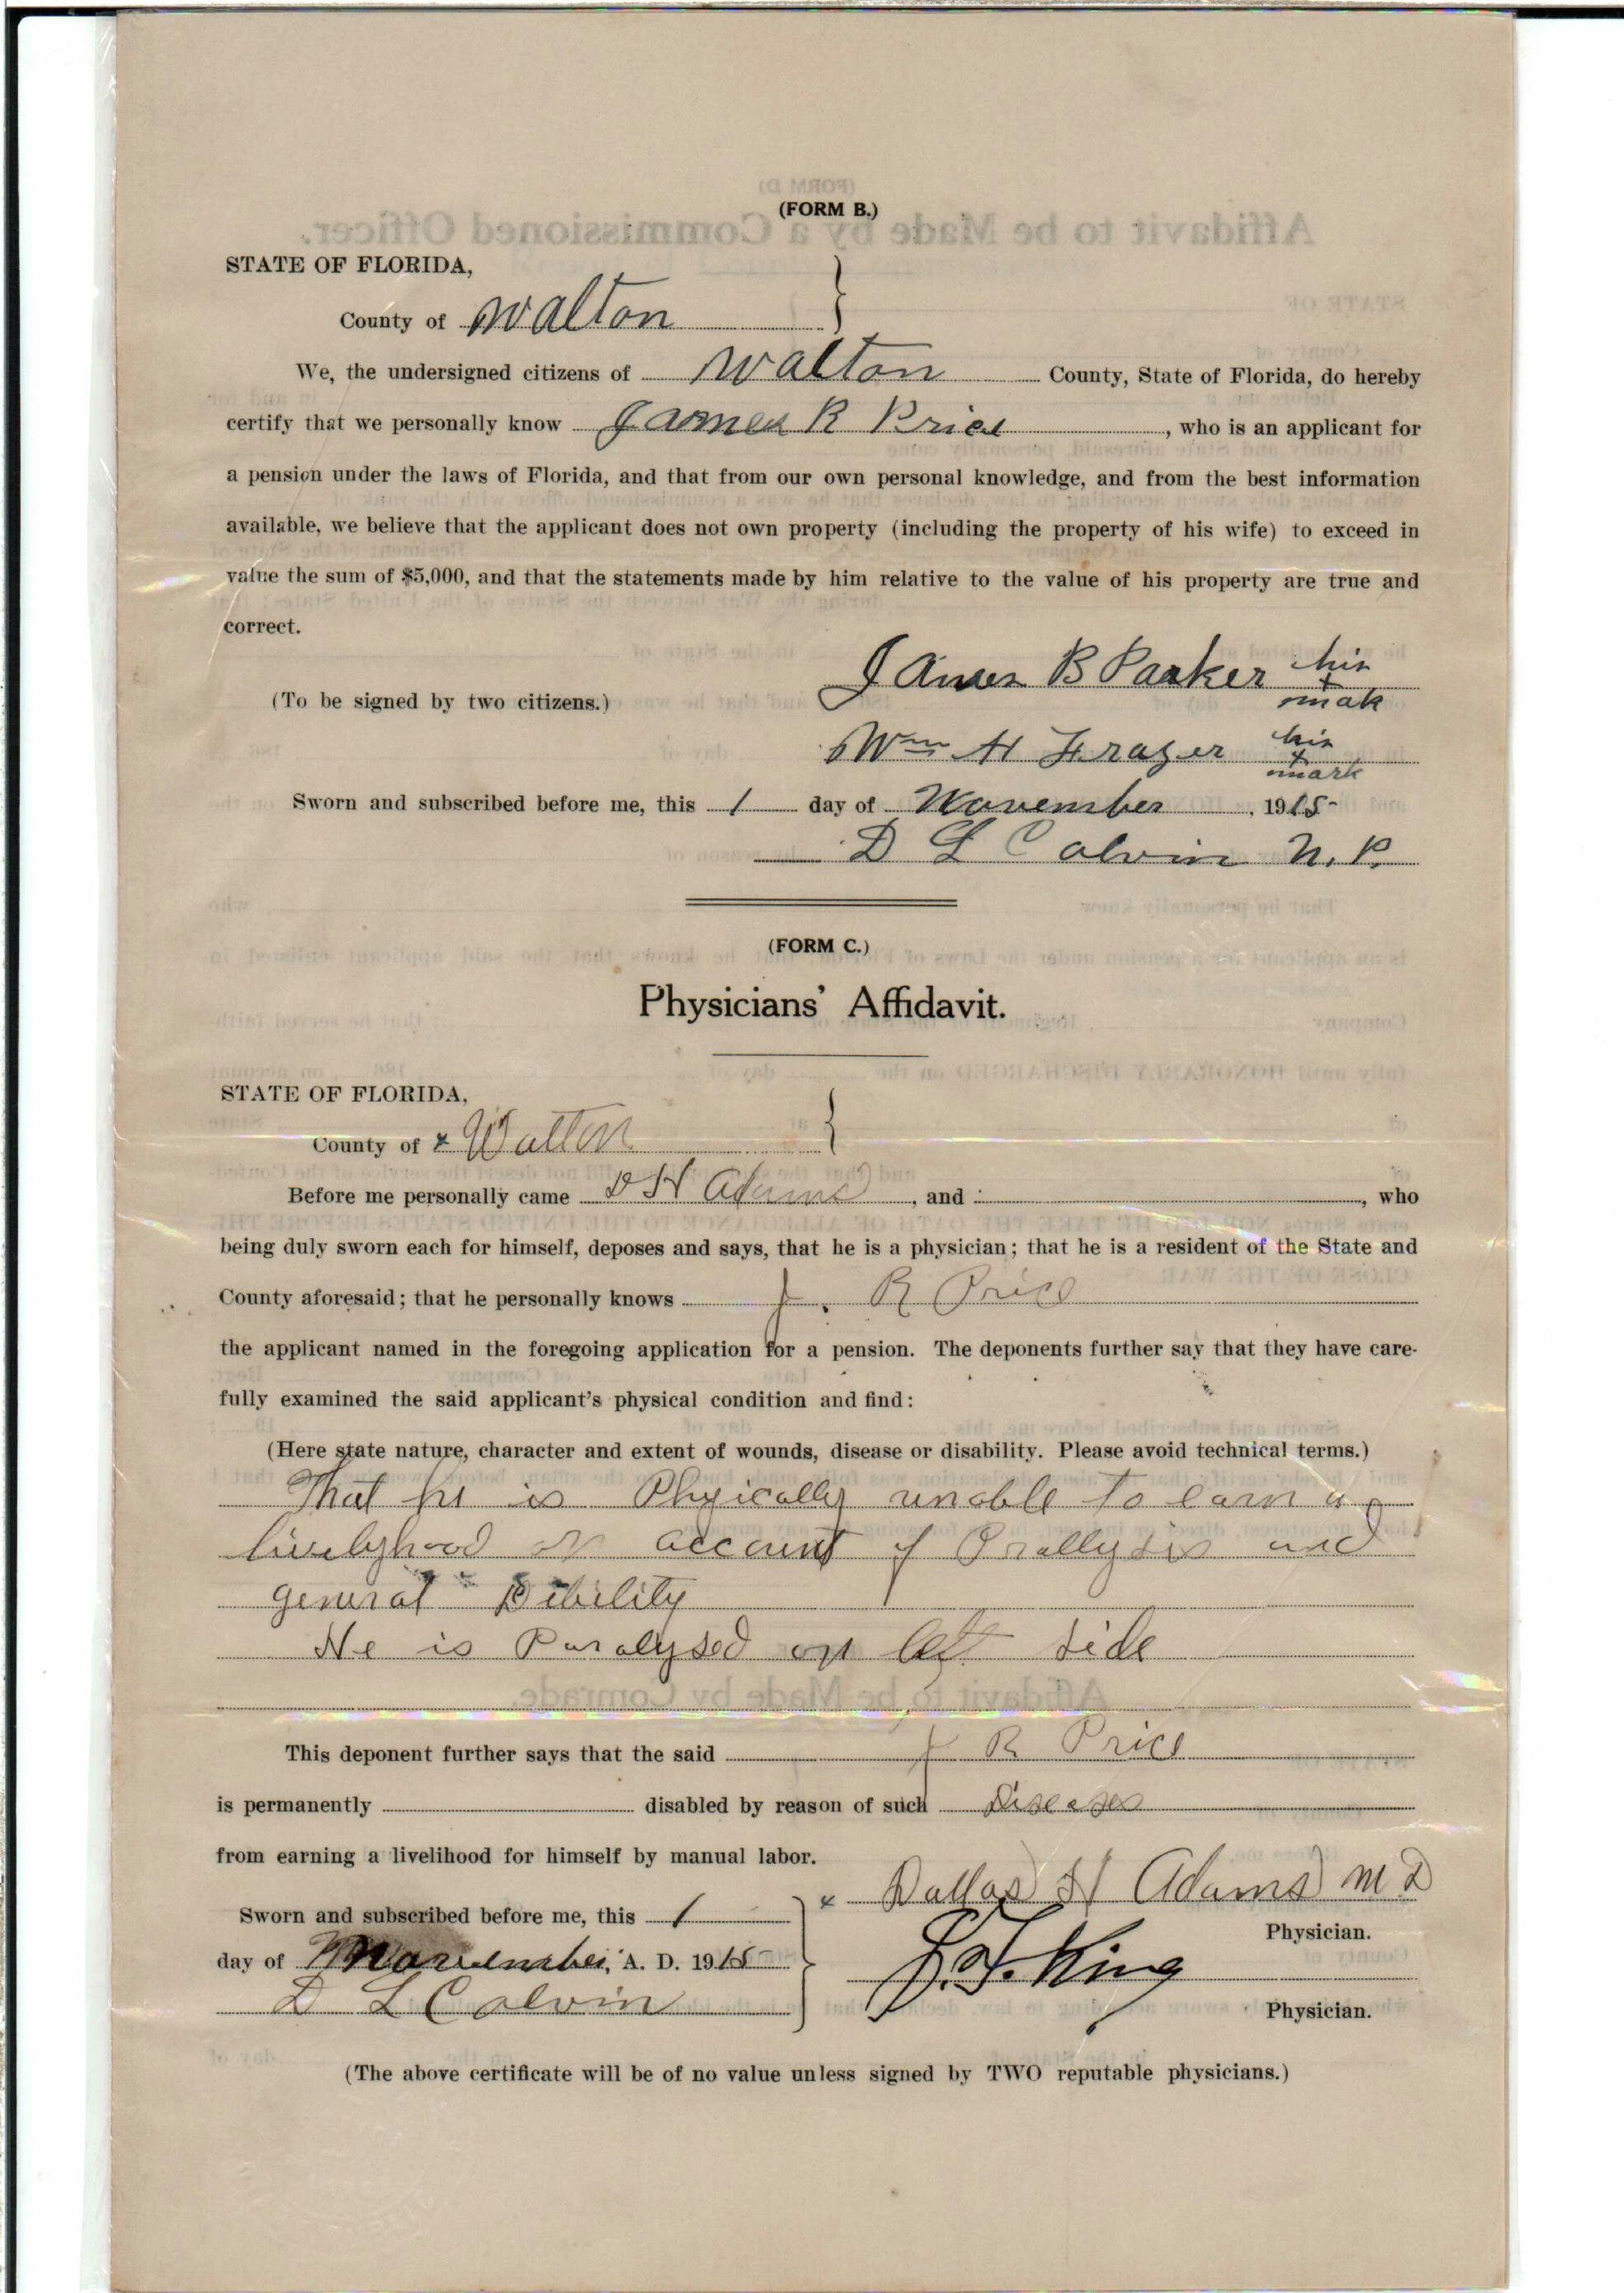 (FORM B.)
STATE OF FLORIDA,
County of Walton
We, the undersigned citizens of Walton County, State of Florida, do hereby
certify that we personally know James R Price, who is an applicant for
a pension under the laws of Florida, and that from our own personal knowledge, and from the best information
available, we believe that the applicant does not own property (including the property of his wife) to exceed in
value the sum of $5,000, and that the statements made by him relative to the value of his property are true and
correct.
James B Parker his
x
mak
(To be signed by two citizens.)
Wm H Frazer his
x
mark
Sworn and subscribed before me, this 1 day of November, 1915-
D L Calvin N. P.
(FORM C.)
Physicians' Affidavit.
STATE OF FLORIDA,
County of x Walton
Before me personally came D H Adams, and , who
being duly sworn each for himself, deposes and says, that he is a physician; that he is a resident of the State and
County aforesaid; that he personally knows J. R Price
the applicant named in the foregoing application for a pension. The deponents further say that they have care-
fully examined the said applicant's physical condition and find:
(Here state nature, character and extent of wounds, disease or disability. Please avoid technical terms.)
That he is Physically unable to earn a
livelyhood on account of Prallysis and
general Dibility
He is Paralysed on left side
This deponent further says that the said J R Price
is permanently disabled by reason of such Diseases
from earning a livelihood for himself by manual labor.
x Dallas H Adams M D
Sworn and subscribed before me, this 1
Physician.
day of November, A. D. 1915-
J. F. King
D L Calvin
Physician.
(The above certificate will be of no value unless signed by TWO reputable physicians.)